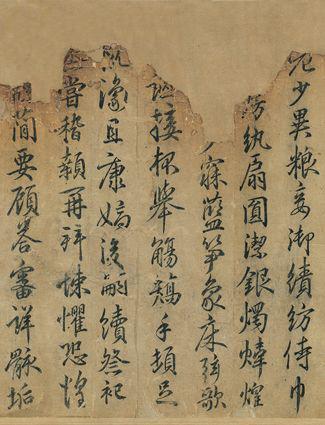 少異粮妾御績紡侍巾
房紈扇圓潔銀燭煒煌
寐藍笋象床弦歌
接杯舉觴矯手頓足
豫且康嫡後嗣續祭祀
嘗稽顙再拜悚懼恐惶
簡要顧答審詳骸垢